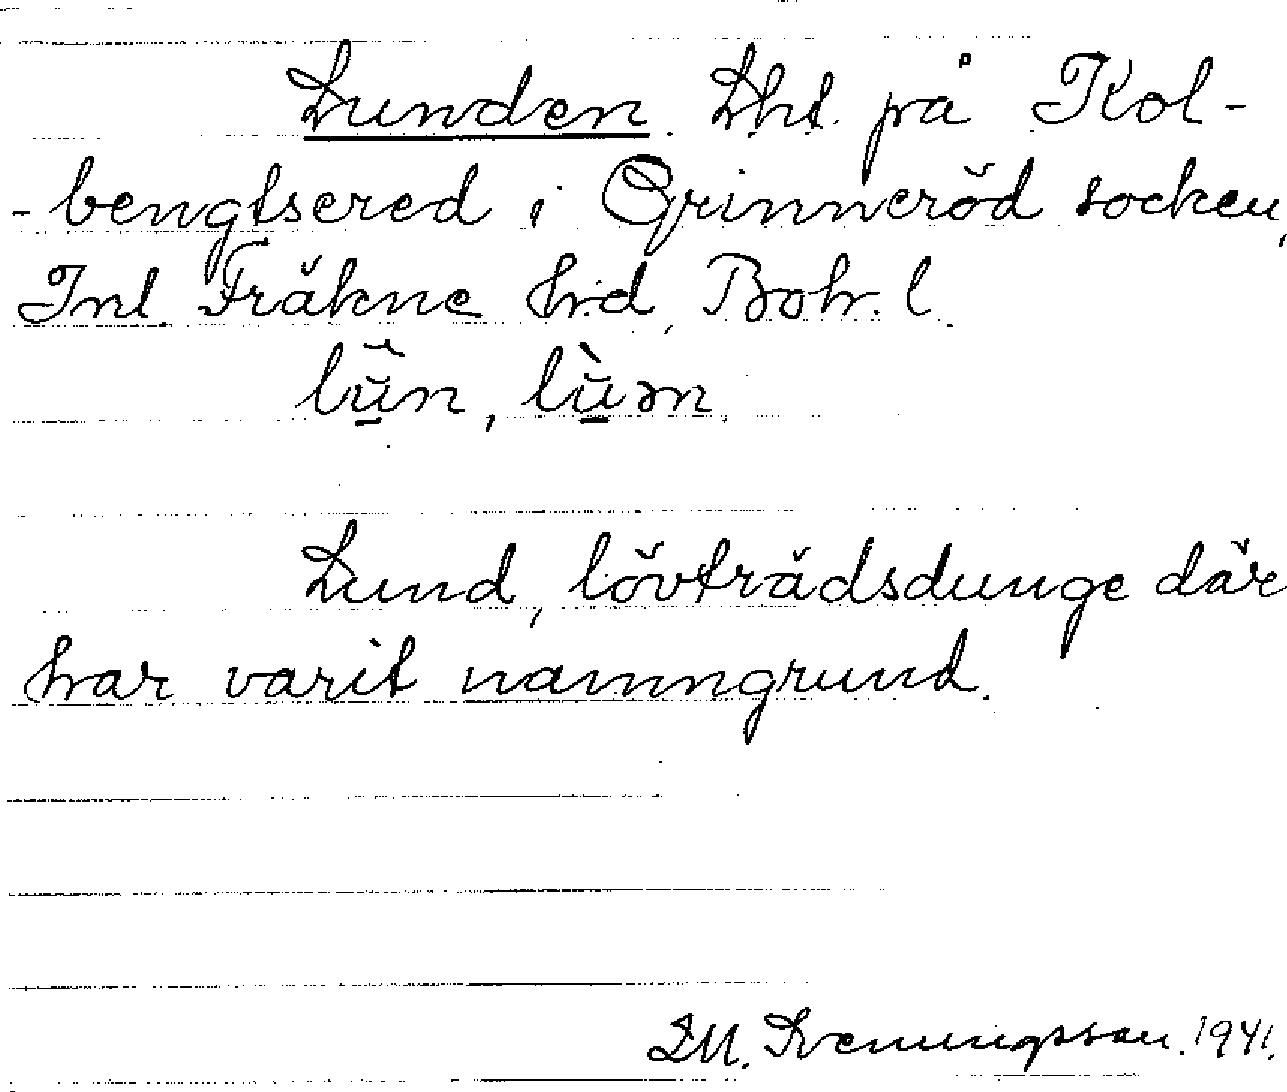 Lunden. Lht. på Kol-
-bengtsered i Grinneröd socken,
Inl. Fräkne hrd, Boh. l.
lu̇̃n, lùən.
Lund, lövträdsdunge där
har varit namngrund.
Svenungsson. 1941.